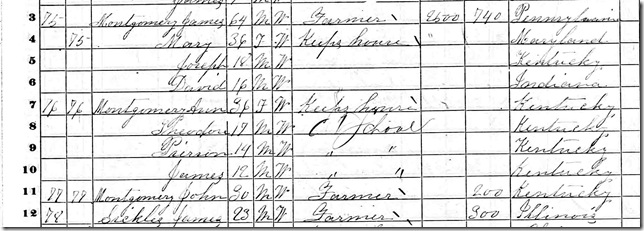 3 75 Montgomery James 64 M W Farmer 2500 740 Pennsylvania
4 75 Mary 36 F W Keeps house " Maryland
5 Joseph 18 M W Kentucky
6 David 16 M W Indiana
7 76 76 Montgomery Ann 36 F W Keeps house Kentucky
8 Theodore 17 M W School Kentucky
9 Pierson 14 M W " " Kentucky
10 James 12 M W " " Kentucky
11 77 77 Montgomery John 30 M W Farmer 200 Kentucky
12 78 Sickles James 23 M W Farmer 300 Illinois